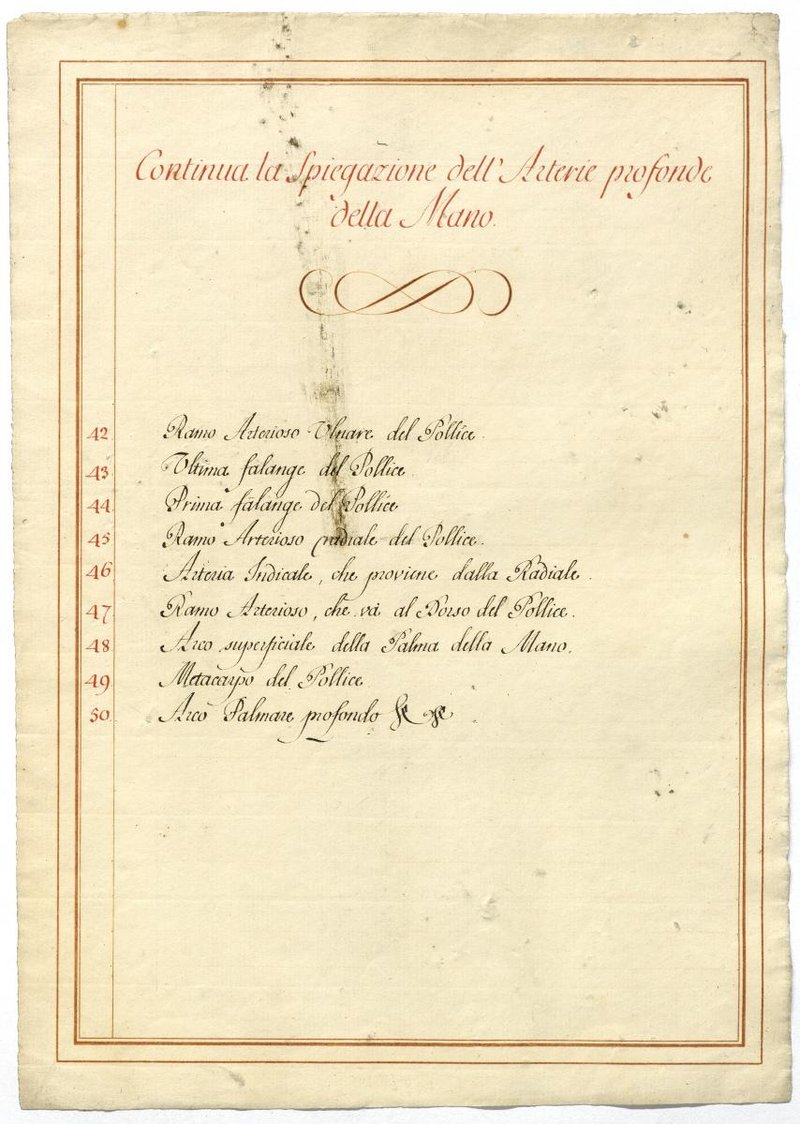 Continua la Spiegazione dell' Arterie profonde
della Mano.
42 Ramo Arterioso Ulnare del Pollice.
43 Ultima falange del Pollice.
44 Prima falange del Pollice
45 Ramo Arterioso radiale del Pollice.
46 Arteria Indicale, che proviene dalla Radiale.
47 Ramo Arterioso, che và al Dorso del Pollice.
48 Arco superficiale della Palma della Mano.
49 Metacarpo del Pollice
50 Arco Palmare profondo